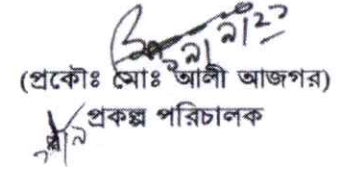 (প্রকৌঃ মোঃ আলী আজগর)
প্রকল্প পরিচালক